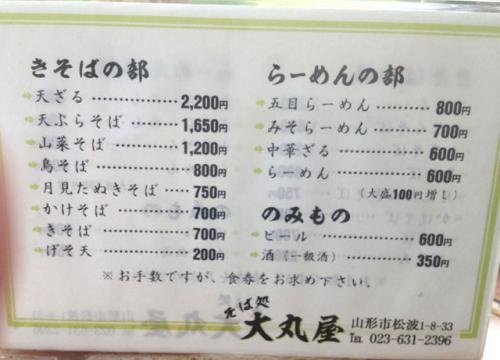 きそばの部
天ざる 2,200円
天ぷらそば 1,650円
山菜そば 1,200円
鳥そば 800円
月見たぬきそば 750円
かけそば 700円
きそば 700円
げそ天 200円
らーめんの部
五目らーめん 800円
みそらーめん 700円
中華ざる 600円
らーめん 600円
(大盛100円増し)
のみもの
ビール 600円
酒(一級酒) 350円
※お手数ですが、食券をお求め下さい。
そば処
大丸屋
山形市松波1-8-33
TEL 023-631-2396